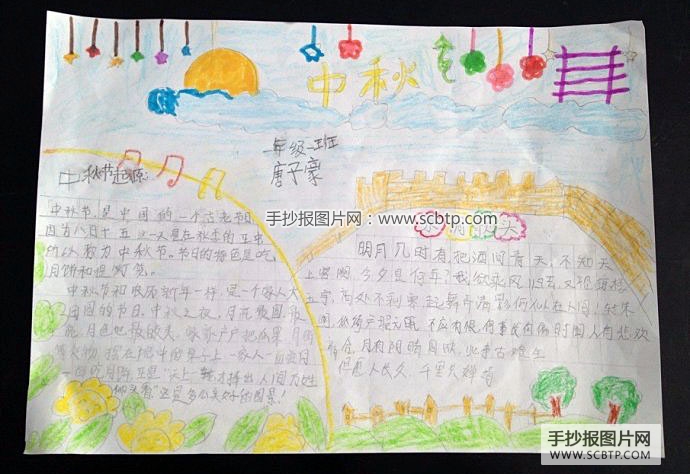 中秋
一年级一班
唐子豪
中秋节起源:
手抄报图片网:www.scbtp.com
中秋节,是中国的一个古老节日,
因为八月十五这一天是在秋季的正中
所以称为中秋节。节日的特色是吃
月饼和提灯笼。
中秋节和农历新年一样,是一个家人大
团圆的节日。中秋之夜,月
月色也
家家户户把瓜果、月饼
等食物,摆在院中的桌子上,一家人一面赏月
一面吃月饼,正是“天上一轮才捧出,人间万姓
仰头看”这是多么美好的图景!
明月几时有,把酒问青天,不知天
上宫阙,今夕是何年?我欲乘风归去,又恐琼楼
玉宇,高处不胜寒,起舞弄清影,何似在人间!转朱
阁,低绮户,照无眠,不应有恨,何事长向别时圆,人有悲欢
离合,月有阴晴月缺,此事古难全
但愿人长久,千里共婵娟
手抄报图片网
SCBTP.COM